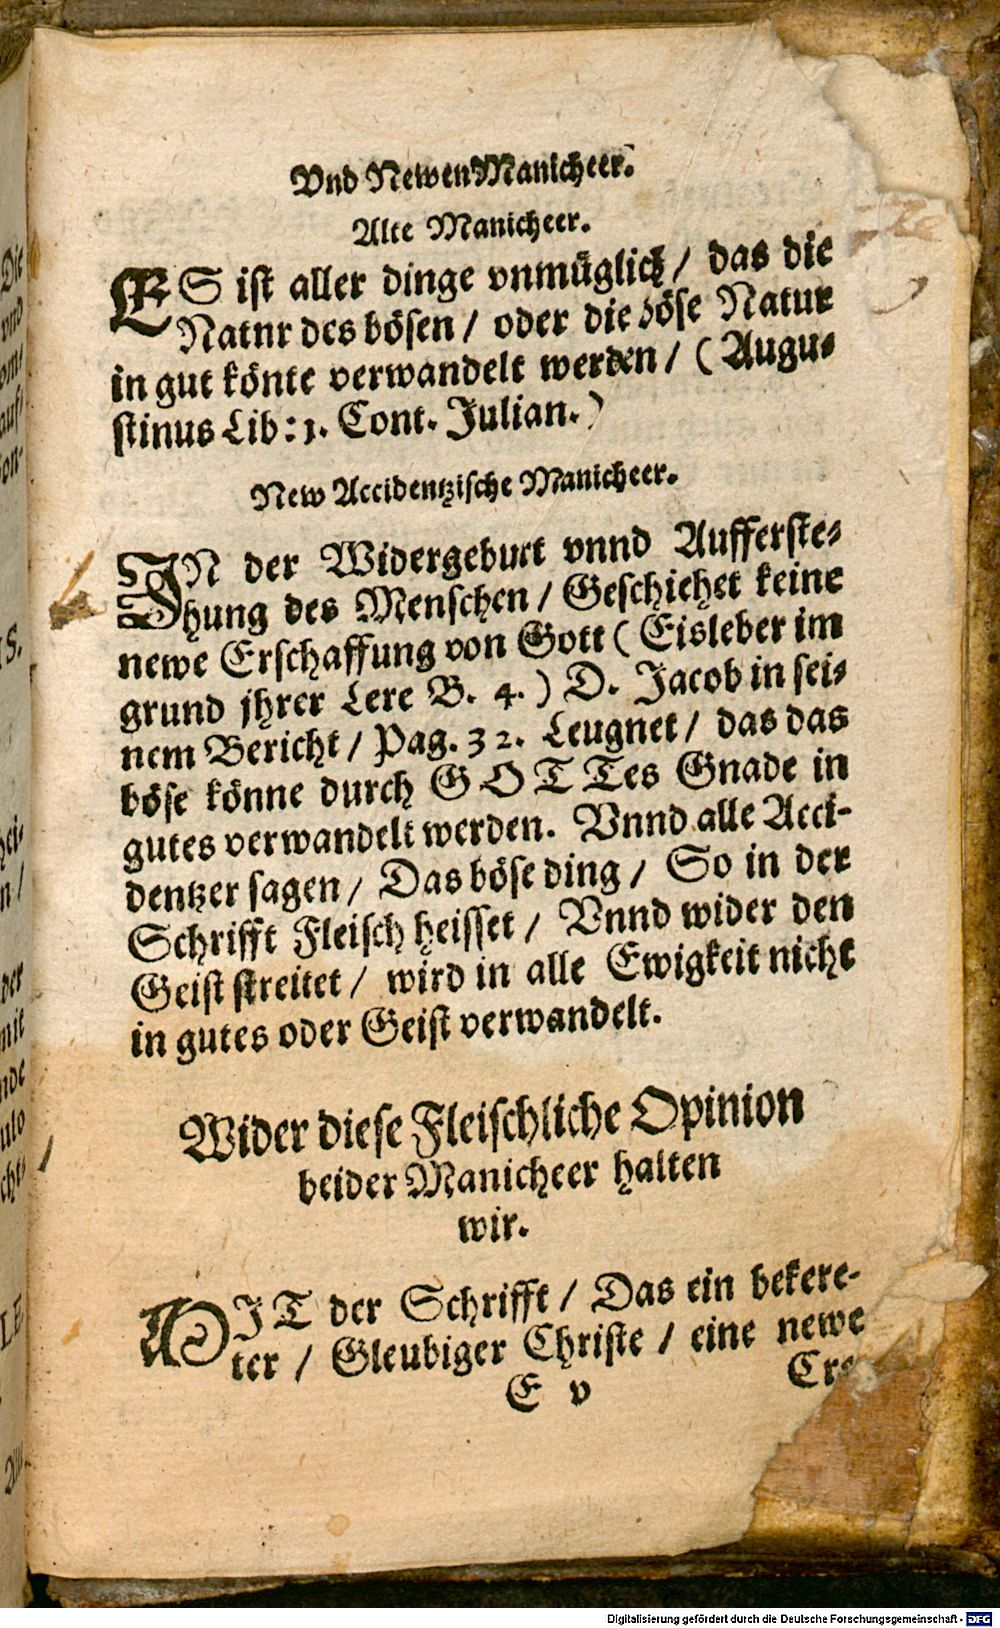 Vnd Newen Manicheer.
Alte Manicheer.
ES ist aller dinge vnmüglich / das die
Natnr des bösen / oder die böse Natur
in gut könte verwandelt werden / ( Augu-
stinus Lib: 1. Cont. Julian. )
New Accidentzische Manicheer.
IN der Widergeburt vnnd Aufferste-
hung des Menschen / Geschiehet keine
newe Erschaffung von Gott ( Eisleber im
grund jhrer Lere B. 4. ) D. Jacob in sei-
nem Bericht / Pag. 32. Leugnet / das das
böse könne durch GOTTes Gnade in
gutes verwandelt werden. Vnnd alle Acci-
dentzer sagen / Das böse ding / So in der
Schrifft Fleisch heisset / Vnnd wider den
Geist streitet / wird in alle Ewigkeit nicht
in gutes oder Geist verwandelt.
Wider diese Fleischliche Opinion
beider Manicheer halten
wir.
MIT der Schrifft / Das ein bekere-
ter / Gleubiger Christe / eine newe
E v
Cre-
Digitalisierung gefördert durch die Deutsche Forschungsgemeinschaft - DFG